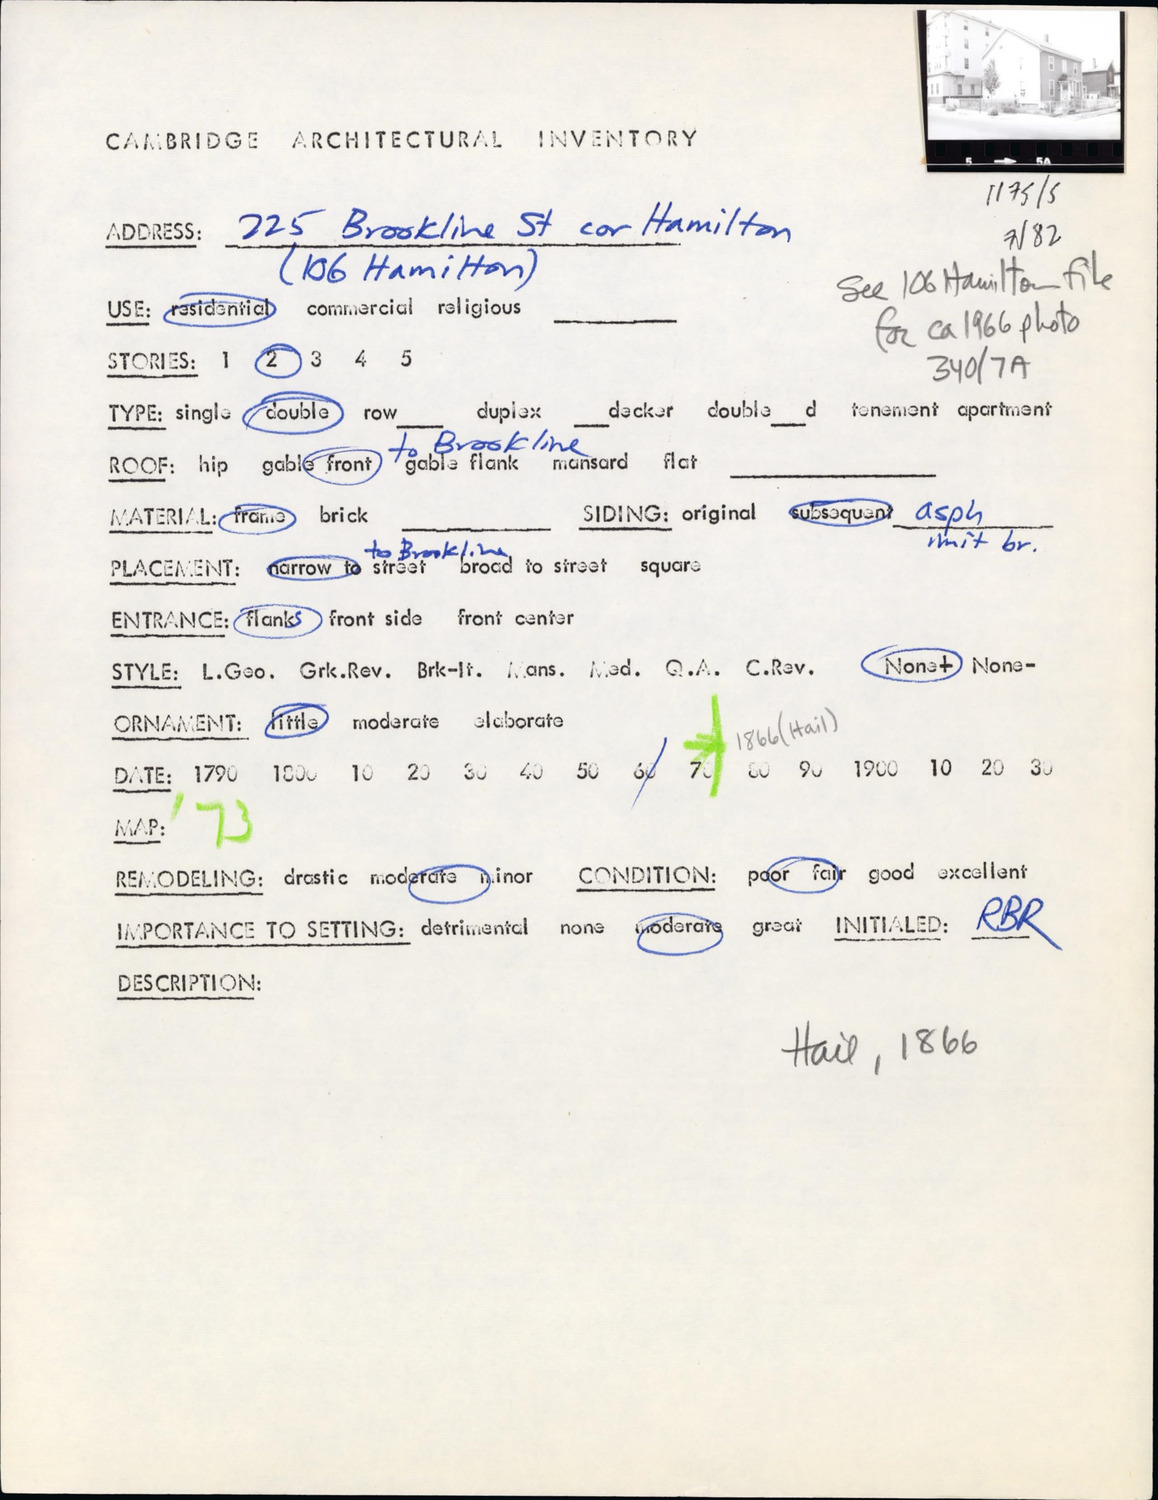 5 → 5A
CAMBRIDGE ARCHITECTURAL INVENTORY
1175/5
7/82
ADDRESS: 225 Brookline St cor Hamilton
(106 Hamilton)
See 106 Hamilton file
for ca 1966 photo
340/7A
USE: residential commercial religious
STORIES: 1 2 3 4 5
TYPE: single double row___ duplex ___decker double___d tenement apartment
to Brookline
ROOF: hip gable front gable flank mansard flat
MATERIAL: frame brick SIDING: original subsequent asph
imit br.
to Brookline
PLACEMENT: narrow to street broad to street square
ENTRANCE: flanks front side front center
STYLE: L.Geo. Grk.Rev. Brk-It. Mans. Med. Q.A. C.Rev. None+ None-
ORNAMENT: little moderate elaborate
1866 (Hail)
DATE: 1790 1800 10 20 30 40 50 60 70 80 90 1900 10 20 30
MAP: '73
REMODELING: drastic moderate minor CONDITION: poor fair good excellent
IMPORTANCE TO SETTING: detrimental none moderate great INITIALED: RBR
DESCRIPTION:
Hail, 1866